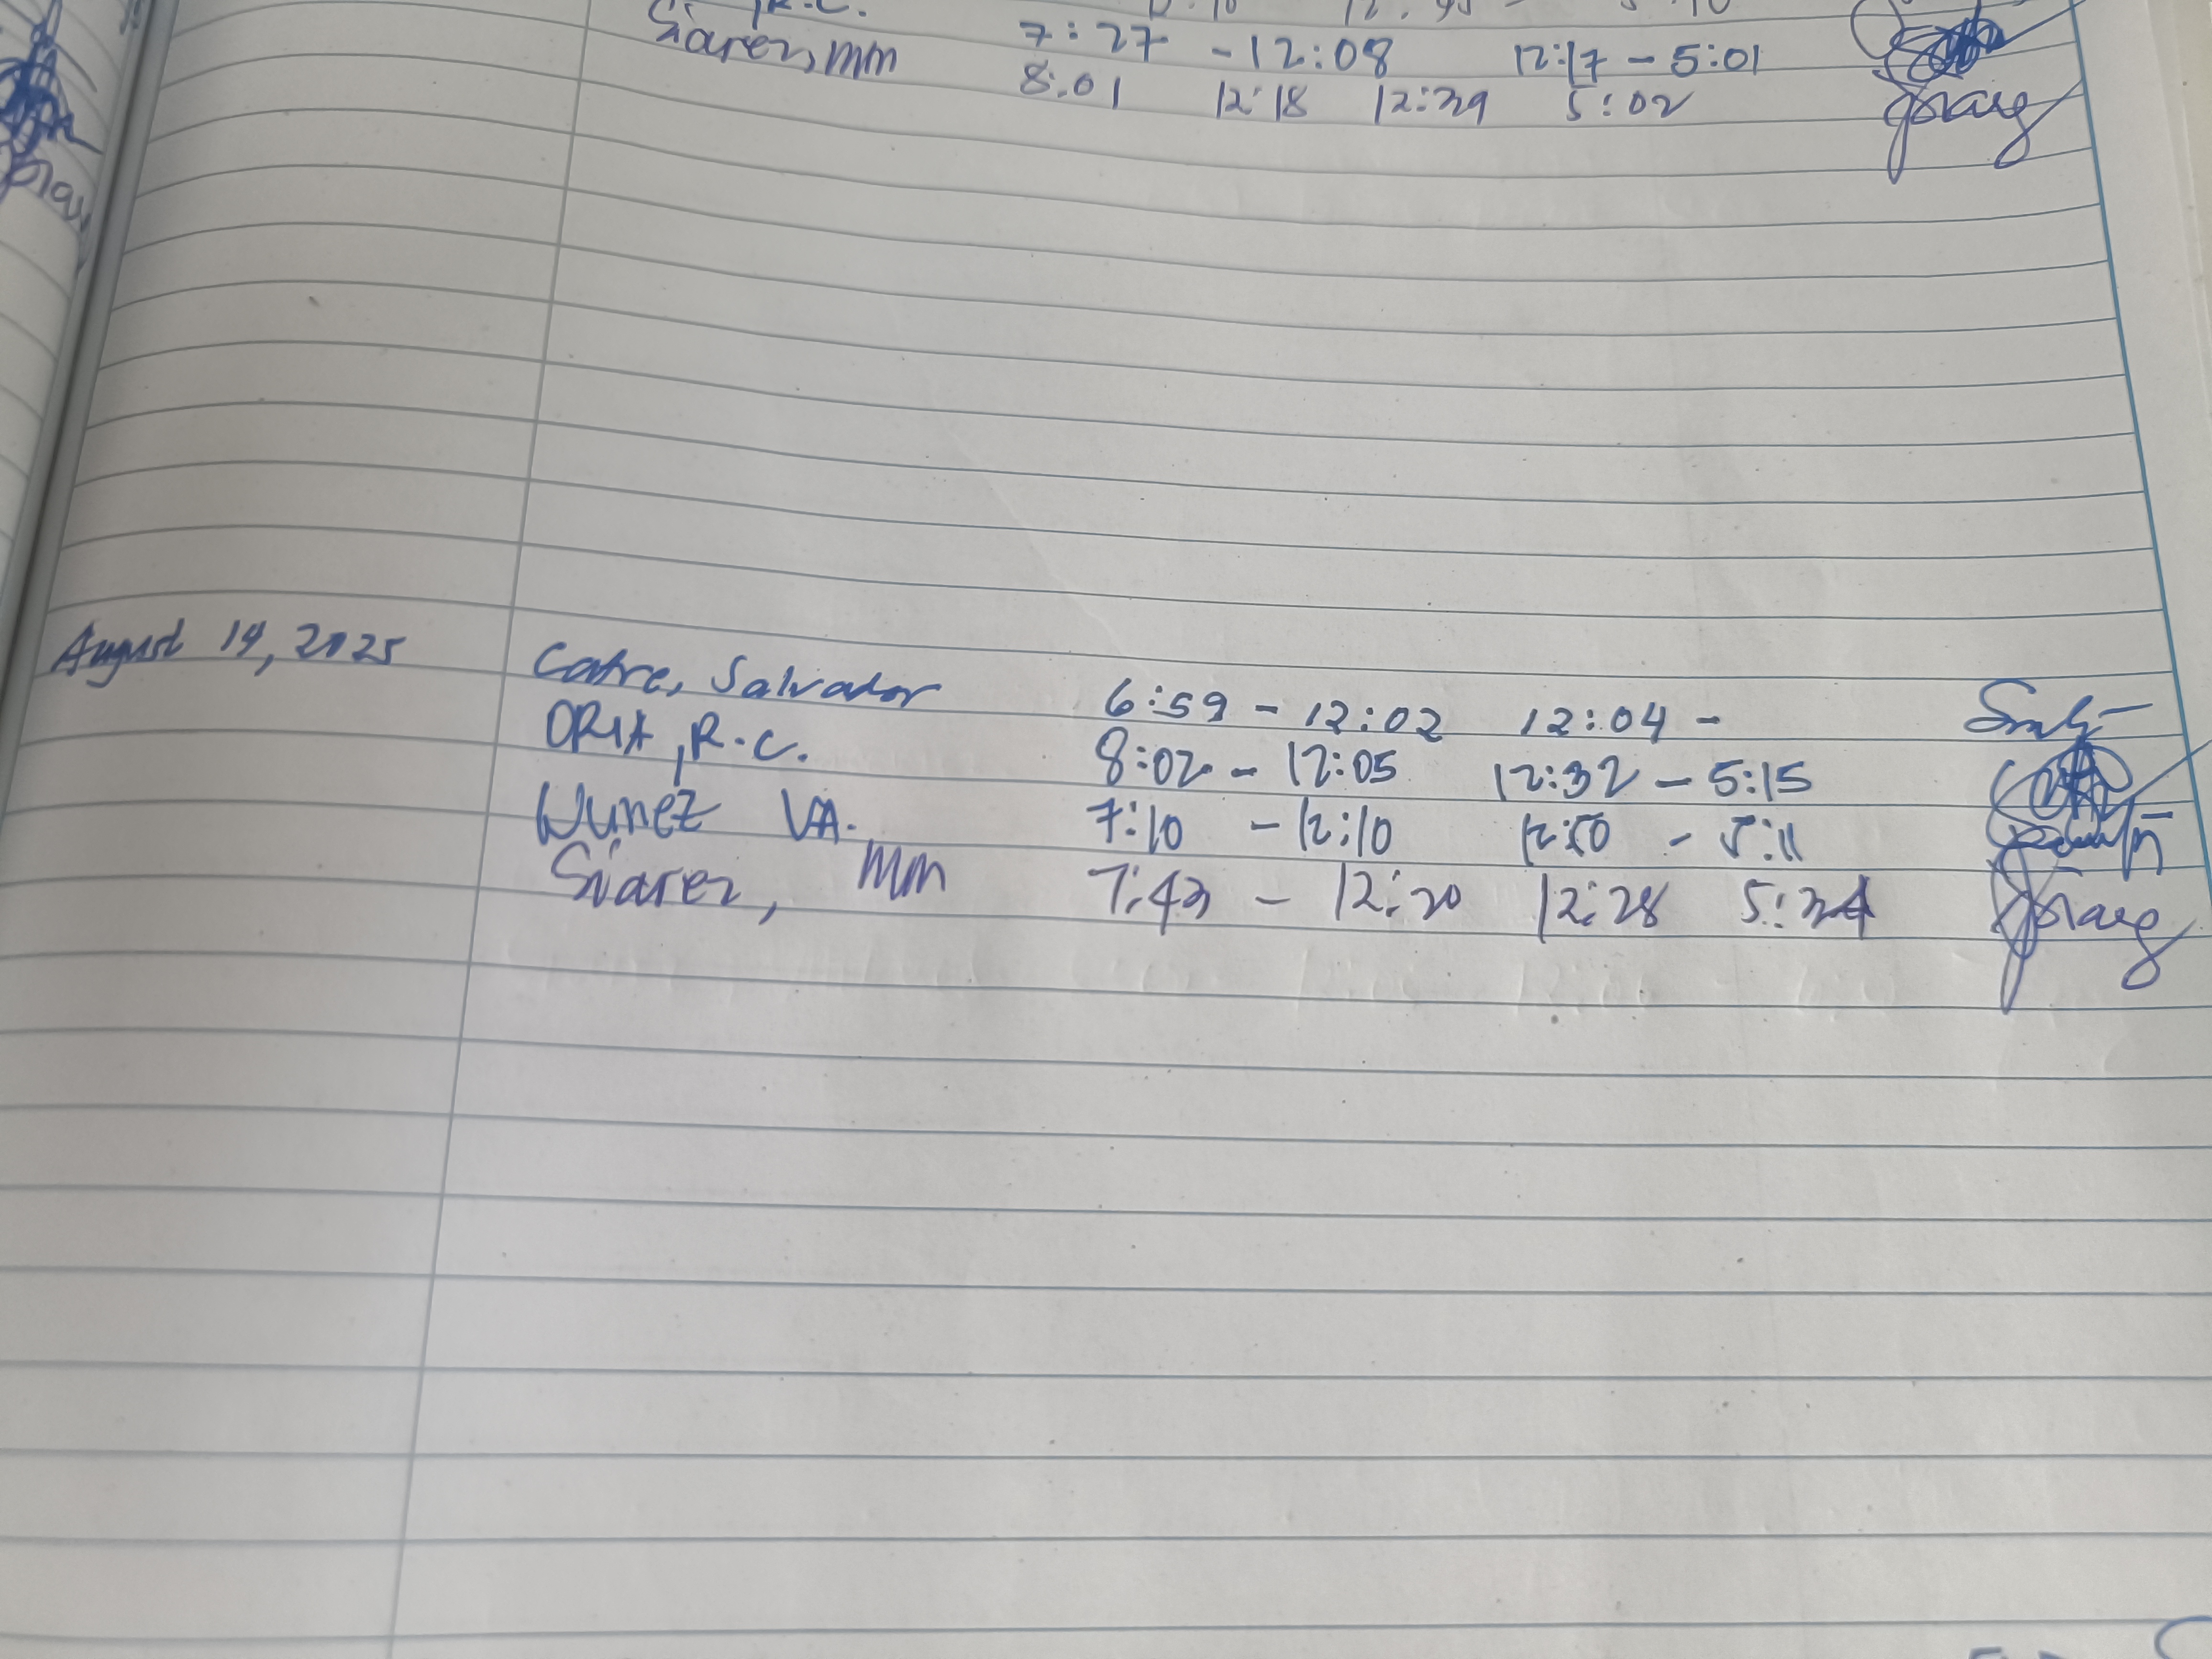 R.C.
7:27 - 12:08 12:17 - 5:01
Siarez, MM 8:01 12:18 12:39 5:02
August 14, 2025 Catre, Salvador 6:59 - 12:02 12:04 -
ORIA, R.C. 8:02 - 12:05 12:32 - 5:15
Nunez VA. 7:10 - 12:10 12:50 - 5:11
Siarez, MM 7:43 - 12:20 12:28 5:34